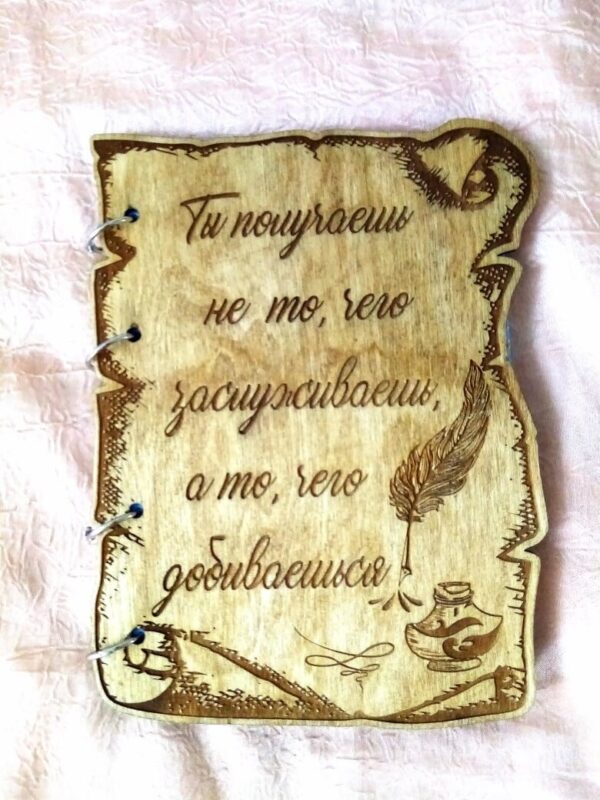 Ты получаешь
не то, чего
заслуживаешь,
а то, чего
добиваешься